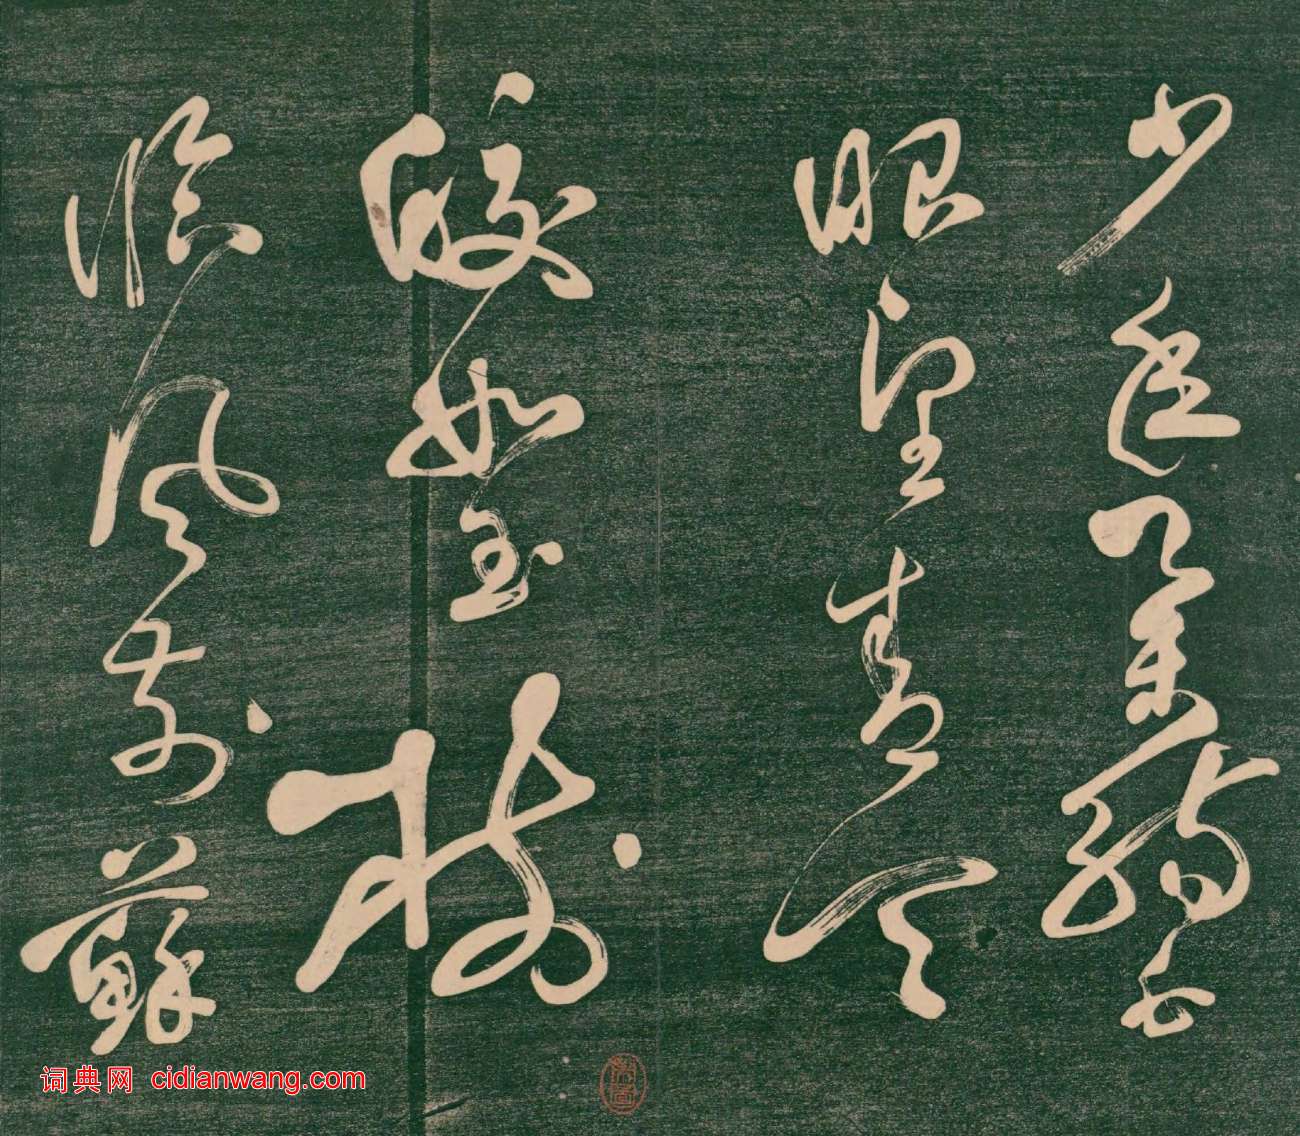 少年舉觴白
眼望青天
皎如玉樹
臨風前蘇
词典网 cidianwang.com